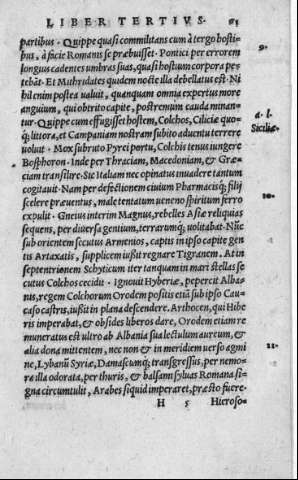 LIBER TERTIVS. 61
partibus. Quippe quasi commilitans cum à tergo hosti-
bus, à facie Romanis se præbuisset. Pontici per errorem
longius cadentes umbras suas, quasi hostium corpora pe-
tebãt. Et Mithridates quidem nocte illa debellatus est. Ni
hil enim postea ualuit, quanquam omnia expertus more
anguium, qui obtrito capite, postremum cauda minan-
tur. Quippe cum effugisset hostem, Colchos, Ciliciæ quo-
q; littora, et Campaniam nostram subito aduentu terrere
uoluit. Mox subruto Pyrei portu, Colchis tenus iungere
Bosphoron. Inde per Thraciam, Macedoniam, & Græ-
ciam transilire. Sic Italiam nec opinatus inuadere tantum
cogitauit. Nam per defectionem ciuium Pharmacisq; filij
scelere præuentus, male tentatum ueneno spiritum ferro
expulit. Gneius interim Magnus, rebelles Asiæ reliquias
sequens, per diuersa gentium, terrarumq; uolitabat. Nãc
sub orientem secutus Armenios, captis in ipso capite gen
tis Artaxatis, supplicem iussit regnare Tigranem. At in
septentrionem Schyticum iter tanquam in mari stellas se
cutus Colchos cecidit. Ignouit Hyberiæ, pepercit Alba-
nis, regem Colchorum Orodem positis etiã sub ipso Cau-
caso castris, iußit in plana descendere. Arthocen, qui Hibe
ris imperabat, & obsides liberos dare, Orodem etiam re
muneratus est ultro ab Albania sua lectulum aureum, &
alia dona mittentem, nec non & in meridiem uerso agmi
ne, Lybanũ Syriæ, Damascumq; transgressus, per nemo-
ra illa odorata, per thuris, & balsami syluas Romana si-
gna circumtulit, Arabes siquid imperaret, præsto fuere.
H 5 Hieroso-
9.
d. l.
Siciliæ
10.
11.